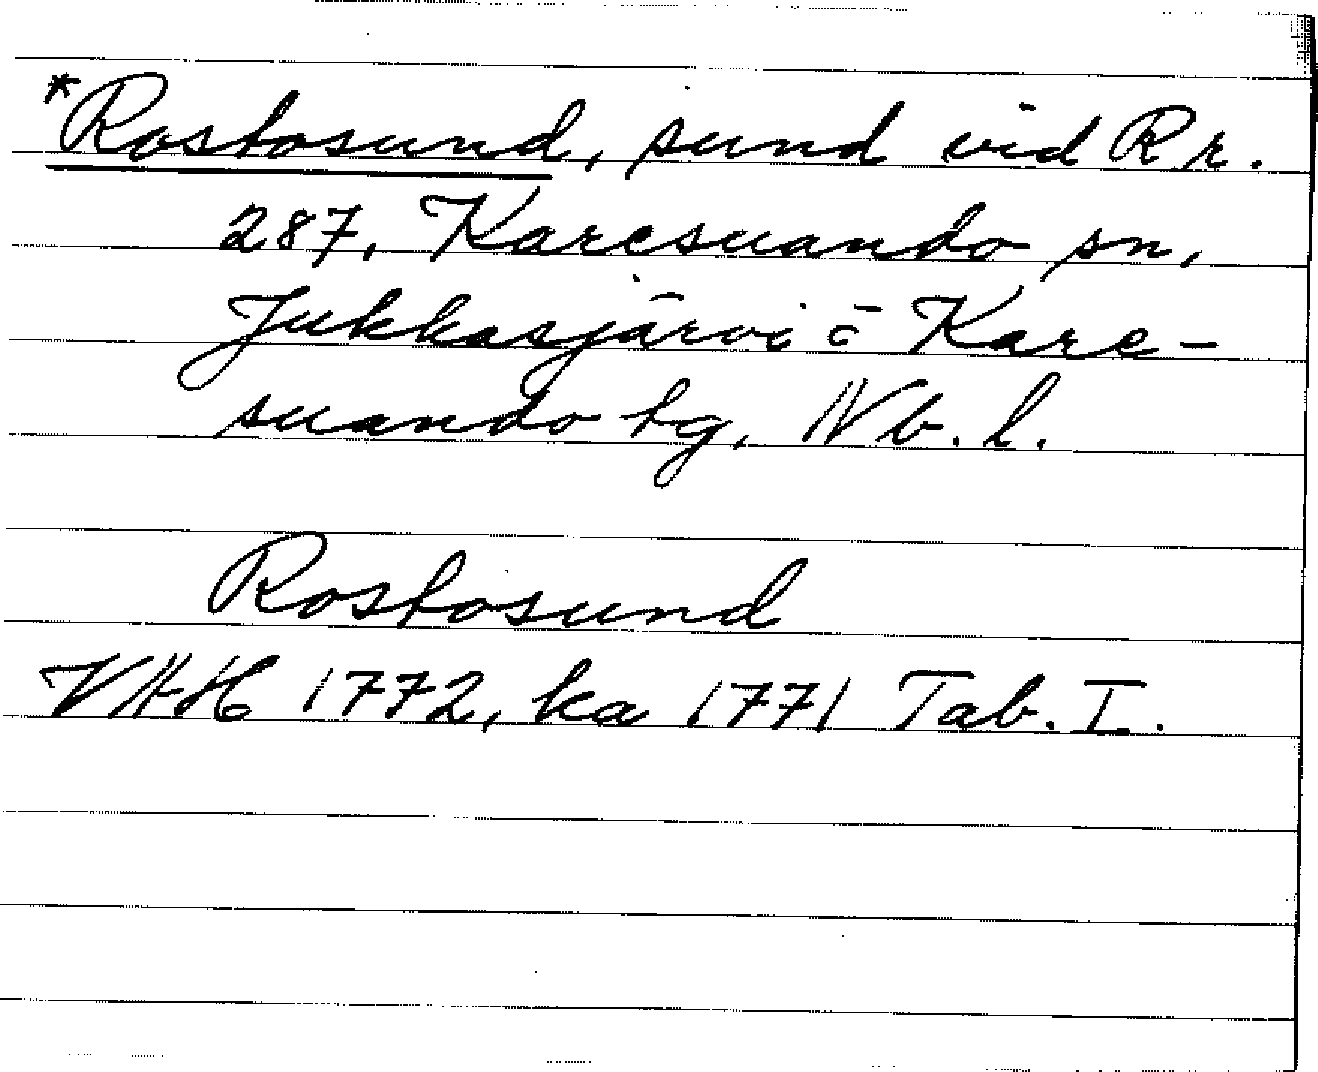 *Rostosund, sund vid R r.
287, Karesuando sn,
Jukkasjärvi o Kare-
suando tg, Nb. l.
Rostosund
VHH 1772, ka 1771 Tab. I.